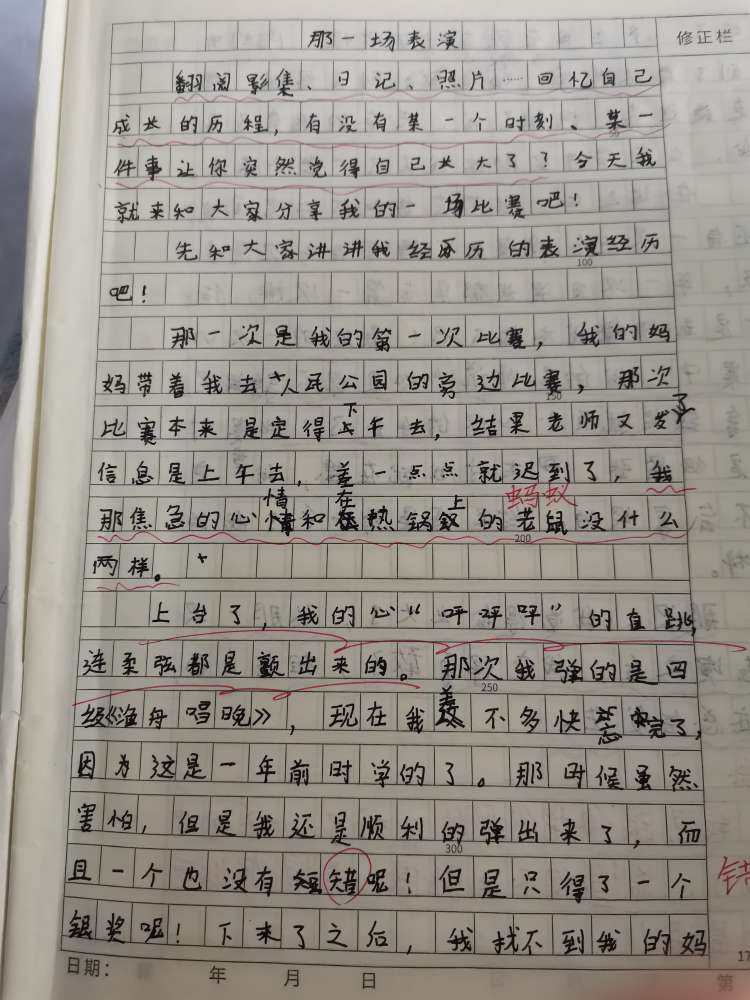 那一场表演
修正栏
翻阅影集、日记、照片……回忆自己
成长的历程，有没有某一个时刻、某一
件事让你突然觉得自己长大了？今天我
就来和大家分享我的一场比赛吧！
先和大家讲讲我经历的表演经历
100
吧！
那一次是我的第一次比赛，我的妈
妈带着我去人民公园的旁边比赛，那次
150
比赛本来是定得下午去，结果老师又发了
信息是上午去，差一点点就迟到了，我
那焦急的心情和在热锅上的老鼠没什么
蚂蚁
200
两样。
上台了，我的心“呯呯呯”的直跳，
连柔弦都是颤出来的。那次我弹的是四
250
级《渔舟唱晚》，现在我差不多快忘完了，
因为这是一年前时学的了。那时候虽然
害怕，但是我还是顺利的弹出来了，而
300
且一个也没有错呢！但是只得了一个
错
银奖呢！下来了之后，我找不到我的妈
日期： 年 月 日
17
第